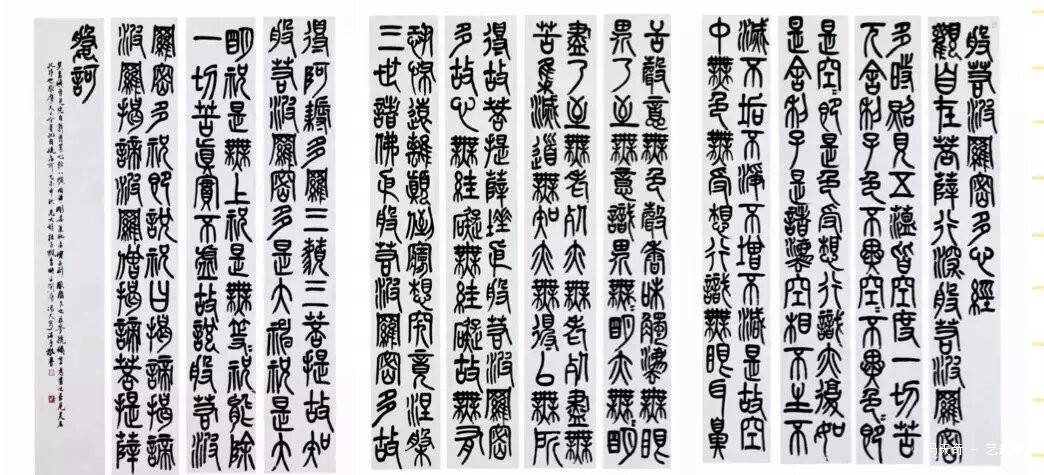 般若波羅密多心經
觀自在菩薩行深般若波羅密
多時照見五蘊皆空度一切苦
厄舍利子色不異空空不異色即
是空空即是色受想行識亦復如
是舍利子是諸法空相不生不
滅不垢不淨不增不減是故空
中無色無受想行識無眼耳鼻
舌身意無色聲香味觸法無眼
界乃至無意識界無無明亦無無明
盡乃至無老死亦無老死盡無
苦集滅道無知亦無得以無所
得故菩提薩埵依般若波羅密
多故心無罣礙無罣礙故無有
恐怖遠離顛倒夢想究竟涅槃
三世諸佛依般若波羅密多故
得阿耨多羅三藐三菩提故知
般若波羅密多是大神咒是大
明咒是無上咒是無等等咒能除
一切苦真實不虛故說般若波
羅密多咒即說咒曰揭諦揭諦
波羅揭諦波羅僧揭諦菩提薩
婆訶